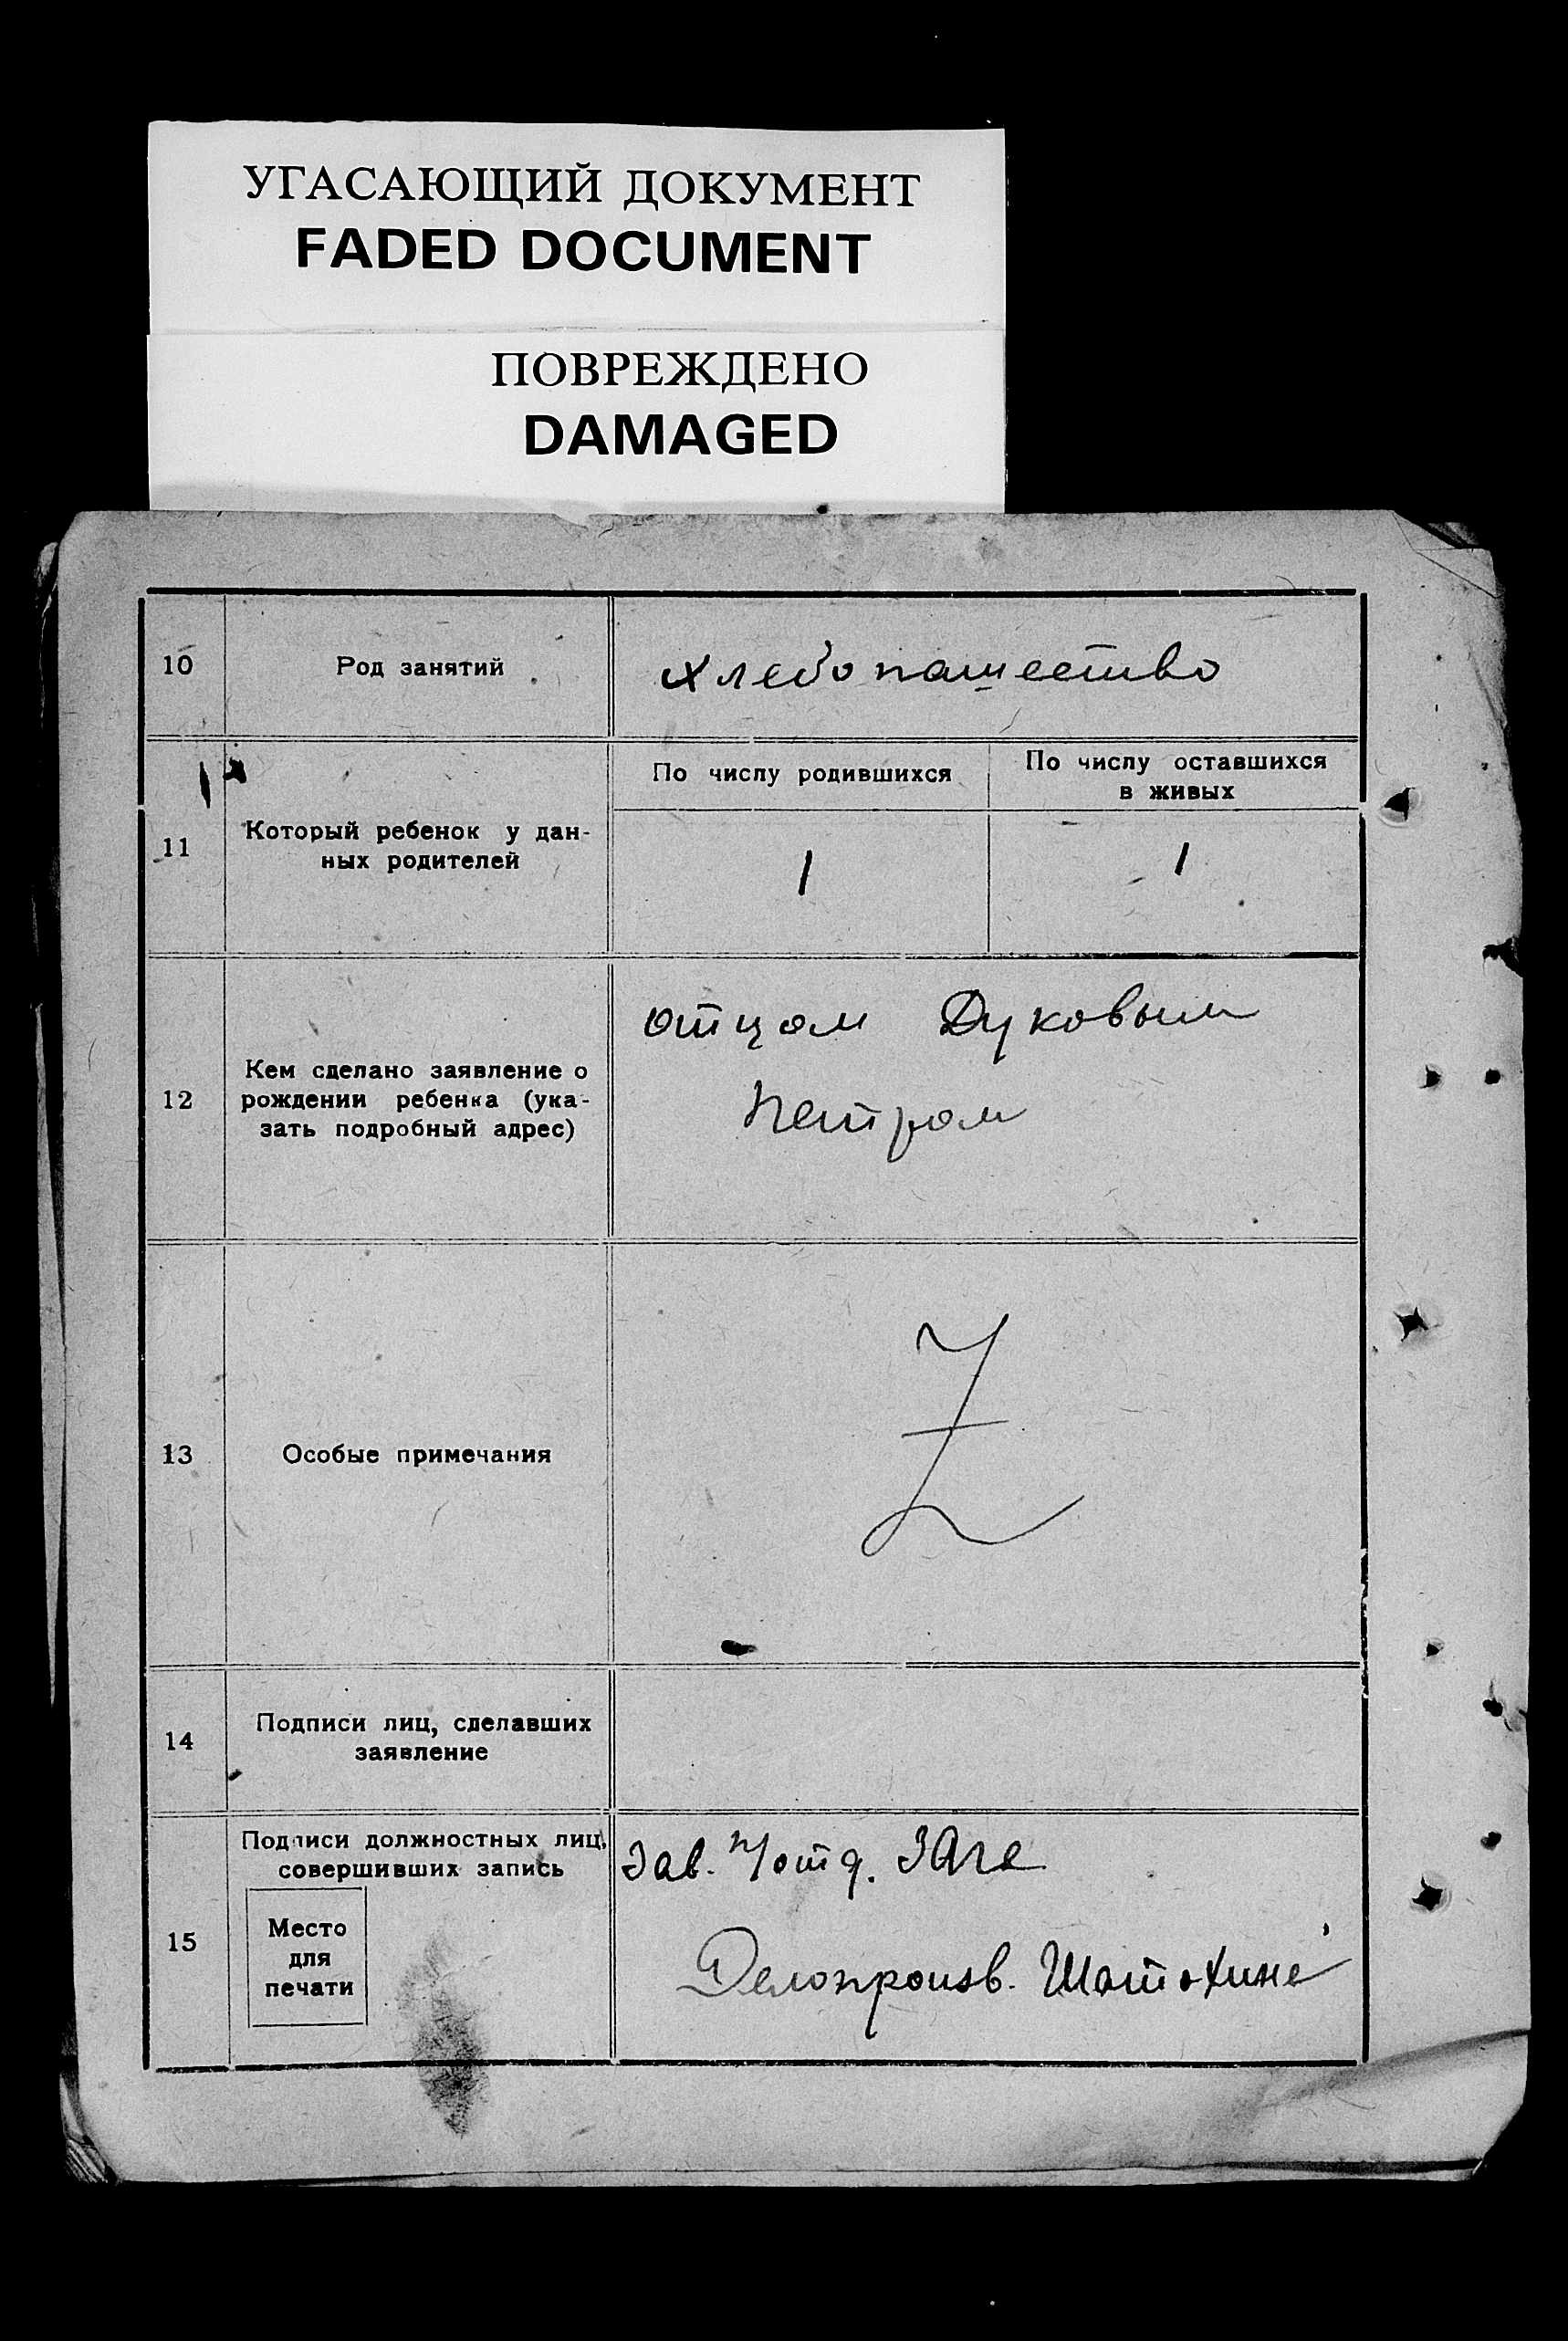 УГАСАЮЩИЙ ДОКУМЕНТ
FADED DOCUMENT
ПОВРЕЖДЕНО
DAMAGED
10
Род занятий
хлебопашество
11
Который ребенок у дан-
ных родителей
По числу родившихся
По числу оставшихся
в живых
1
1
12
Кем сделано заявление о
рождении ребенка (ука-
зать подробный адрес)
отцом Дуковым
Петром
13
Особые примечания
Z
14
Подписи лиц, сделавших
заявление
15
Подписи должностных лиц,
совершивших запись
Место
для
печати
Зав. П/отд. ЗАГС
Делопроизв.